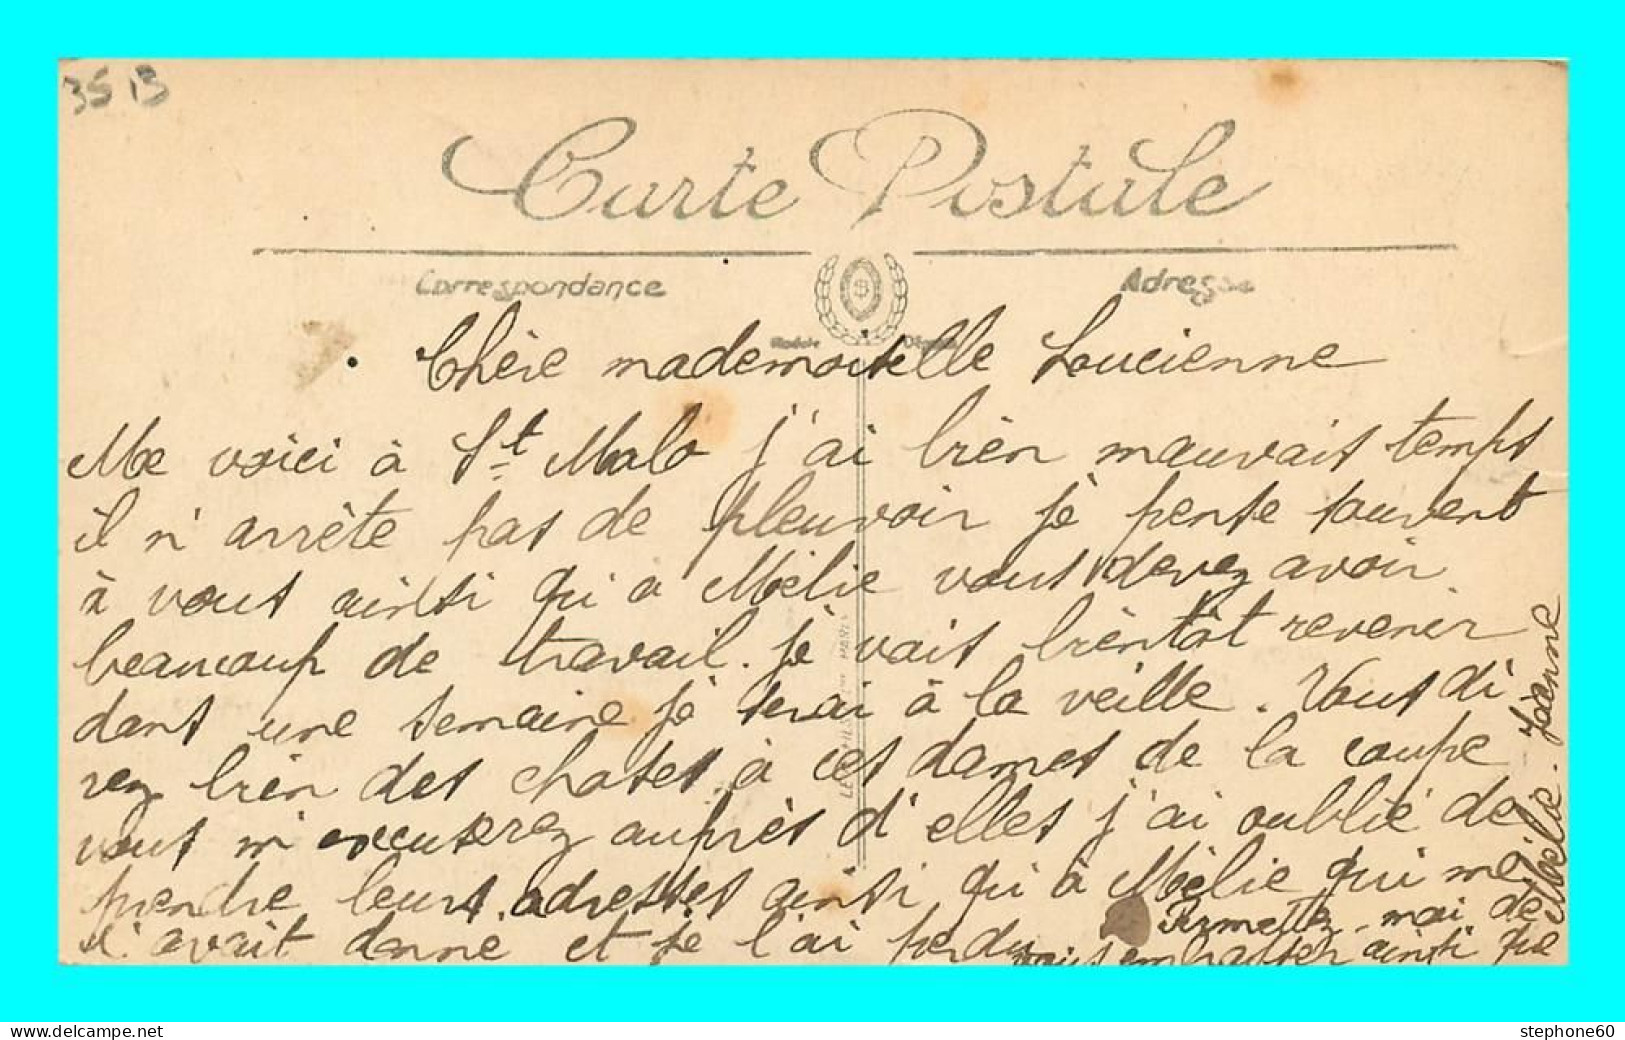 35 13
Carte Postale
Correspondance
Adresse
Chère mademoiselle Loucienne
Me voici à St Malo j'ai bien mauvais temps
il n'arrête pas de pleuvoir je pense souvent
à vous ainsi qu'a Mélie vous devez avoir
beaucoup de travail. je vais bientôt revenir
dans une semaine je serai à la veille. Vous di
rez bien des choses à ces dames de la coupe
vous m'excuserez auprès d'elles j'ai oublié de
prendre leurs adresses ainsi qu'à Mélie qui me
l'avait donne et je l'ai perdu
Permettez-moi de
vous embrasser ainsi que
Mélie. Jeanne
www.delcampe.net
stephone60